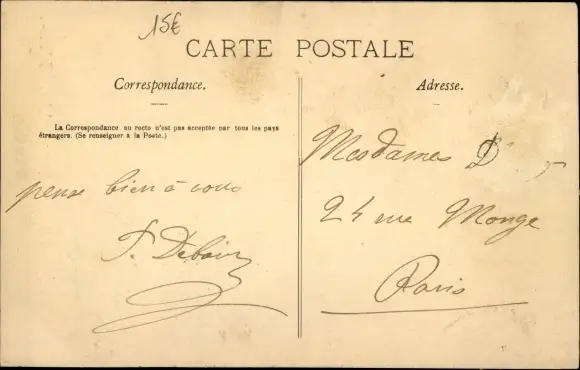 15€
CARTE POSTALE
Correspondance.
La Correspondance au recto n'est pas acceptée par tous les pays
étrangers. (Se renseigner à la Poste.)
pense bien à vous
Adresse.
Mesdames D
24 rue Monge
Paris